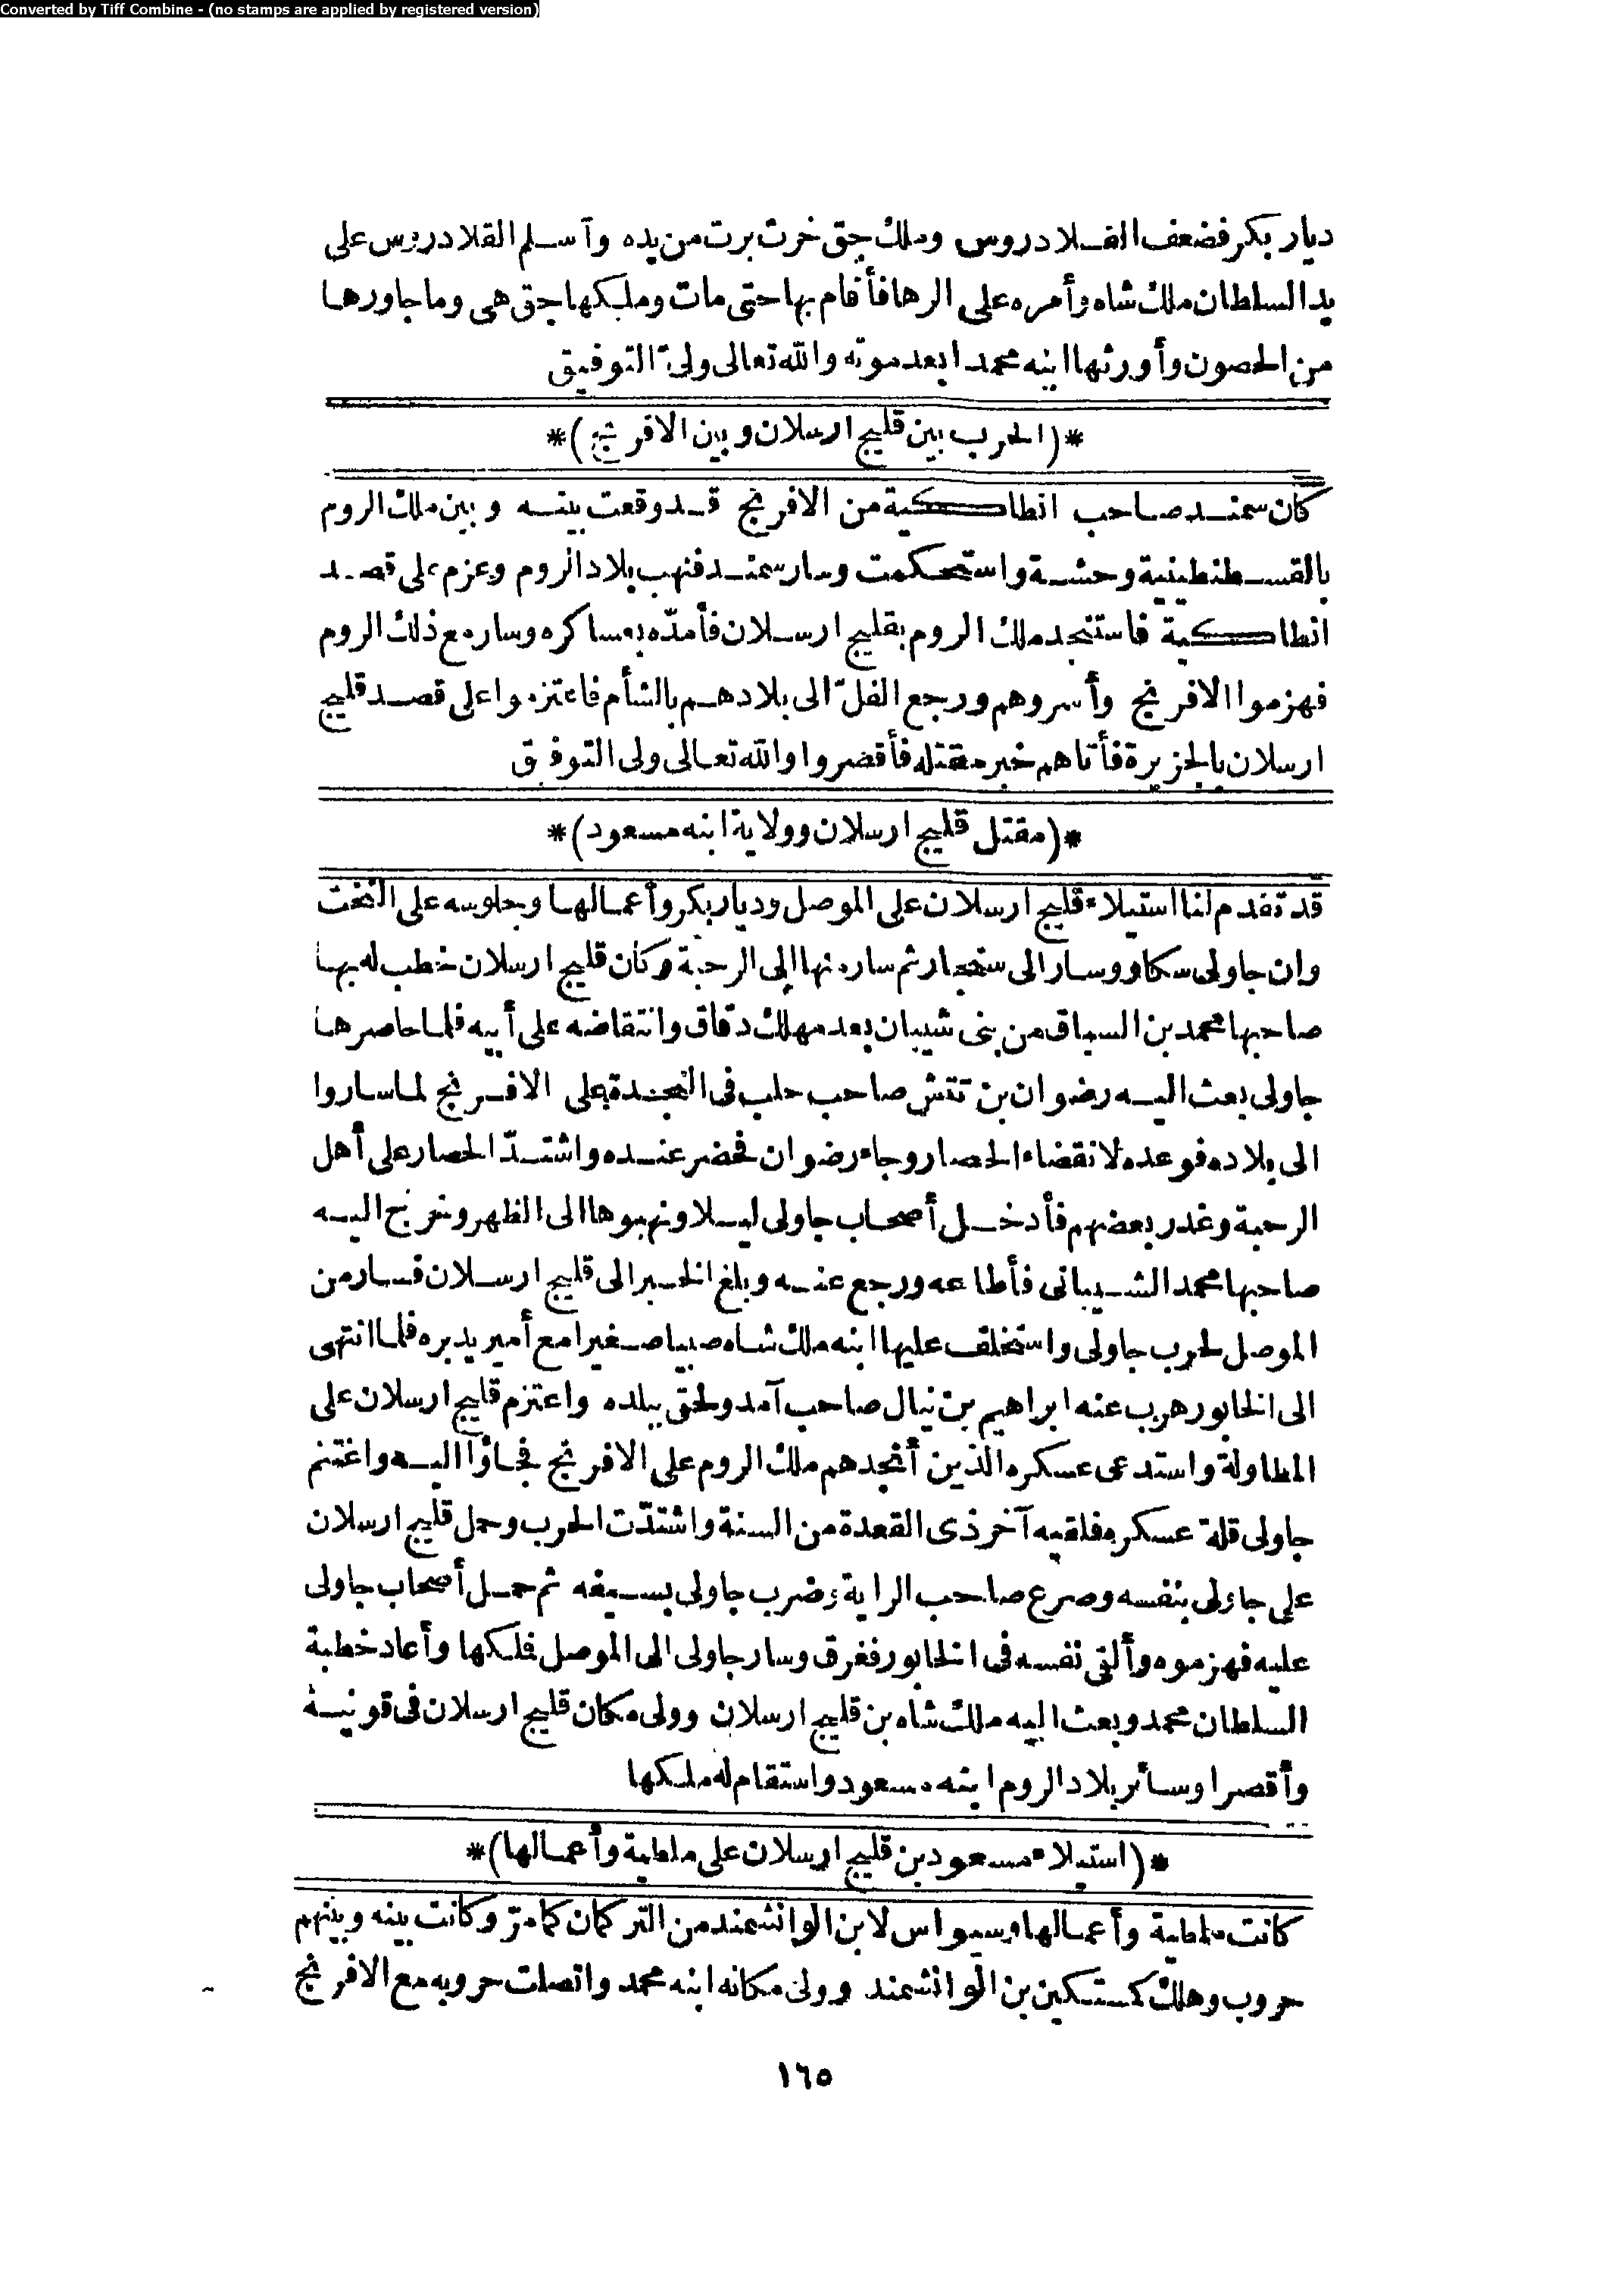 Converted by Tiff Combine - (no stamps are applied by registered version)
ديار بكر فضعف القلادروس وملك جق خرت برت من يده وأسلم القلادروس على
يد السلطان ملك شاه وأمره على الرها فأقام بها حتى مات وملكها جق هى وما جاورها
من الحصون وأورثها ابنه محمدا بعد موته والله تعالى ولىّ التوفيق
*(الحرب بين قليج ارسلان وبين الافرنج)*
كان سمند صاحب انطاكية من الافرنج قد وقعت بينه وبين ملك الروم
بالقسطنطينية وحشة واستحكمت وسار سمند فنهب بلاد الروم وعزم على قصد
انطاكية فاستنجد ملك الروم بقليج ارسلان فأمدّه بعساكره وسار مع ذلك الروم
فهزموا الافرنج وأسروهم ورجع الفلّ الى بلادهم بالشأم فاعتزموا على قصد قليج
ارسلان بالجزيرة فأتاهم خبر مقتله فأقصروا والله تعالى ولى التوفيق
*(مقتل قليج ارسلان وولاية ابنه مسعود)*
قد تقدم لنا استيلاء قليج ارسلان على الموصل وديار بكر وأعمالها وجلوسه على التخت
وان جاولى سكاوو سار الى سنجار ثم سار منها إلى الرحبة وكان قليج ارسلان خطب له بها
صاحبها محمد بن السباق من بنى شيبان بعد مهلك دقاق وانتقاضه على أبيه فلما حاصرها
جاولى بعث اليه رضوان بن تتش صاحب حلب فى النجدة على الافرنج لما ساروا
الى بلاده فوعده لانقضاء الحصار وجاء رضوان فحضر عنده واشتدّ الحصار على أهل
الرحبة وغدر بعضهم فأدخل أصحاب جاولى ليلا ونهبوها الى الظهر وخرج اليه
صاحبها محمد الشيبانى فأطاعه ورجع عنه وبلغ الخبر الى قليج ارسلان فسار من
الموصل لحرب جاولى واستخلف عليها ابنه ملك شاه صبيا صغيرا مع أمير يدبره فلما انتهى
الى الخابور هرب عنه ابراهيم بن نيال صاحب آمد ولحق ببلده واعتزم قليج ارسلان على
المطاولة واستدعى عسكره الذين أنجدهم ملك الروم على الافرنج فجاؤا اليه واغتنم
جاولى قلة عسكره فلقيه آخر ذى القعدة من السنة واشتدّت الحرب وحمل قليج ارسلان
على جاولى بنفسه وصرع صاحب الراية وضرب جاولى بسيفه ثم حمل أصحاب جاولى
عليه فهزموه وألقى نفسه فى الخابور فغرق وسار جاولى الى الموصل فملكها وأعاد خطبة
السلطان محمد وبعث اليه ملك شاه بن قليج ارسلان وولى مكان قليج ارسلان فى قونية
وأقصرا وسائر بلاد الروم ابنه مسعود واستقام له ملكها
*(استيلاء مسعود بن قليج ارسلان على ملطية وأعمالها)*
كانت ملطية وأعمالها وسيواس لابن الوانشمند من التركمان كما مرّ وكانت بينه وبينهم
حروب وهلك كمستكين بن الوانشمند وولى مكانه ابنه محمد واتصلت حروبه مع الافرنج
١٦٥